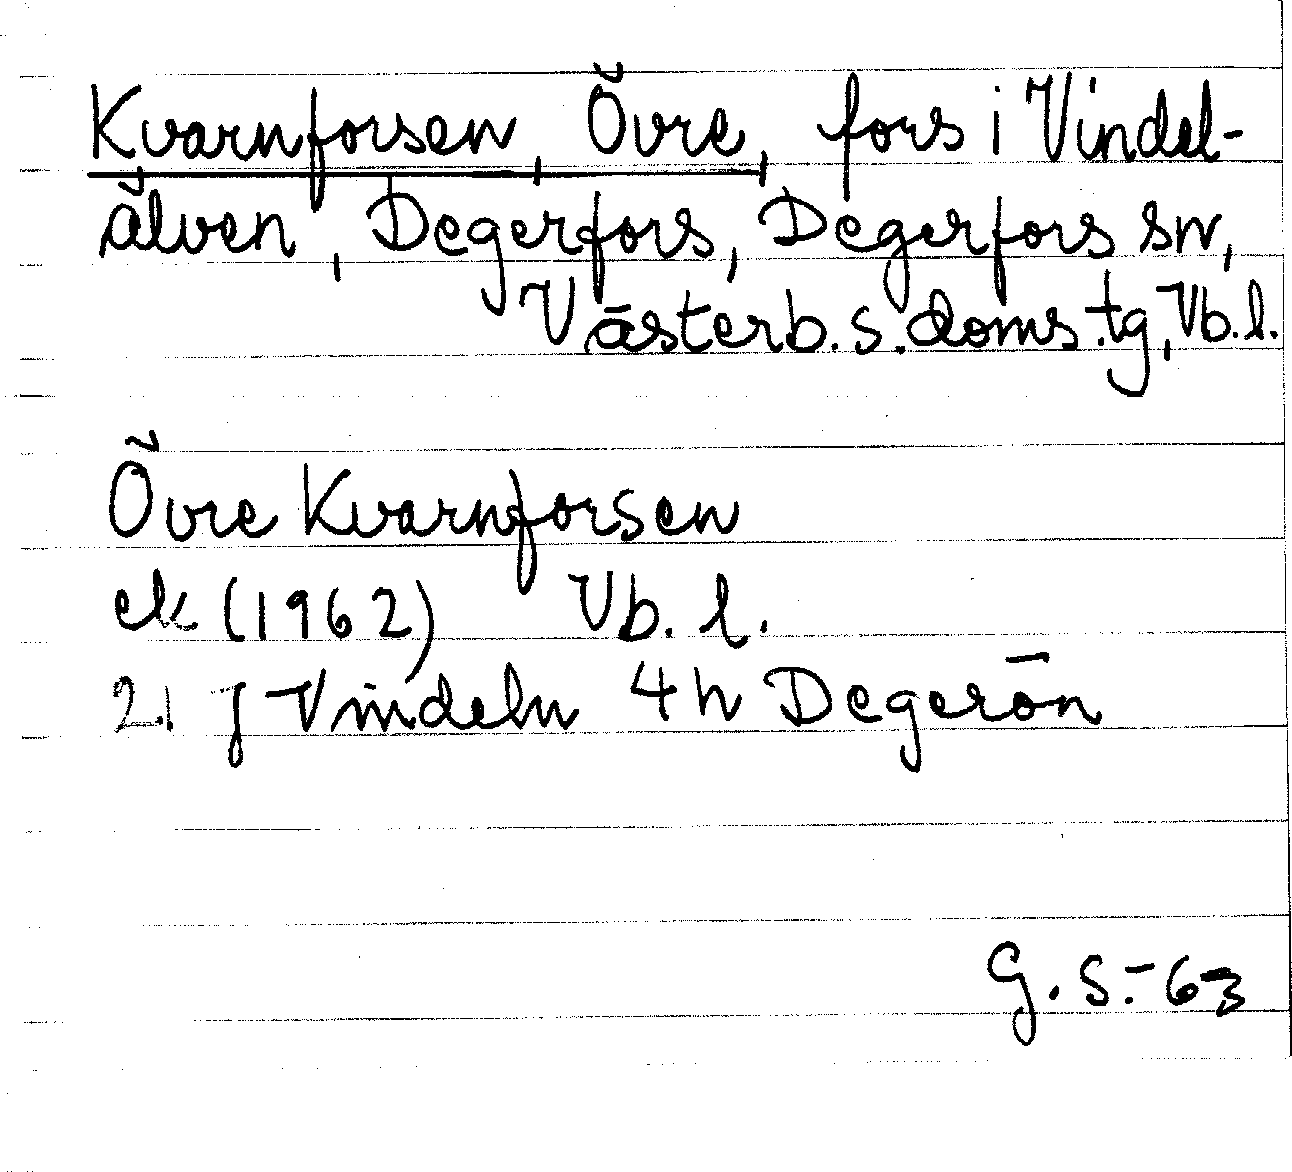 Kvarnforsen, Övre, fors i Vindel-
älven, Degerfors, Degerfors sn,
Västerb. s. doms. tg, Vb. l.
Övre Kvarnforsen
ek (1962) Vb. l.
21 J Vindeln 4 h Degerön
G. S. - 63